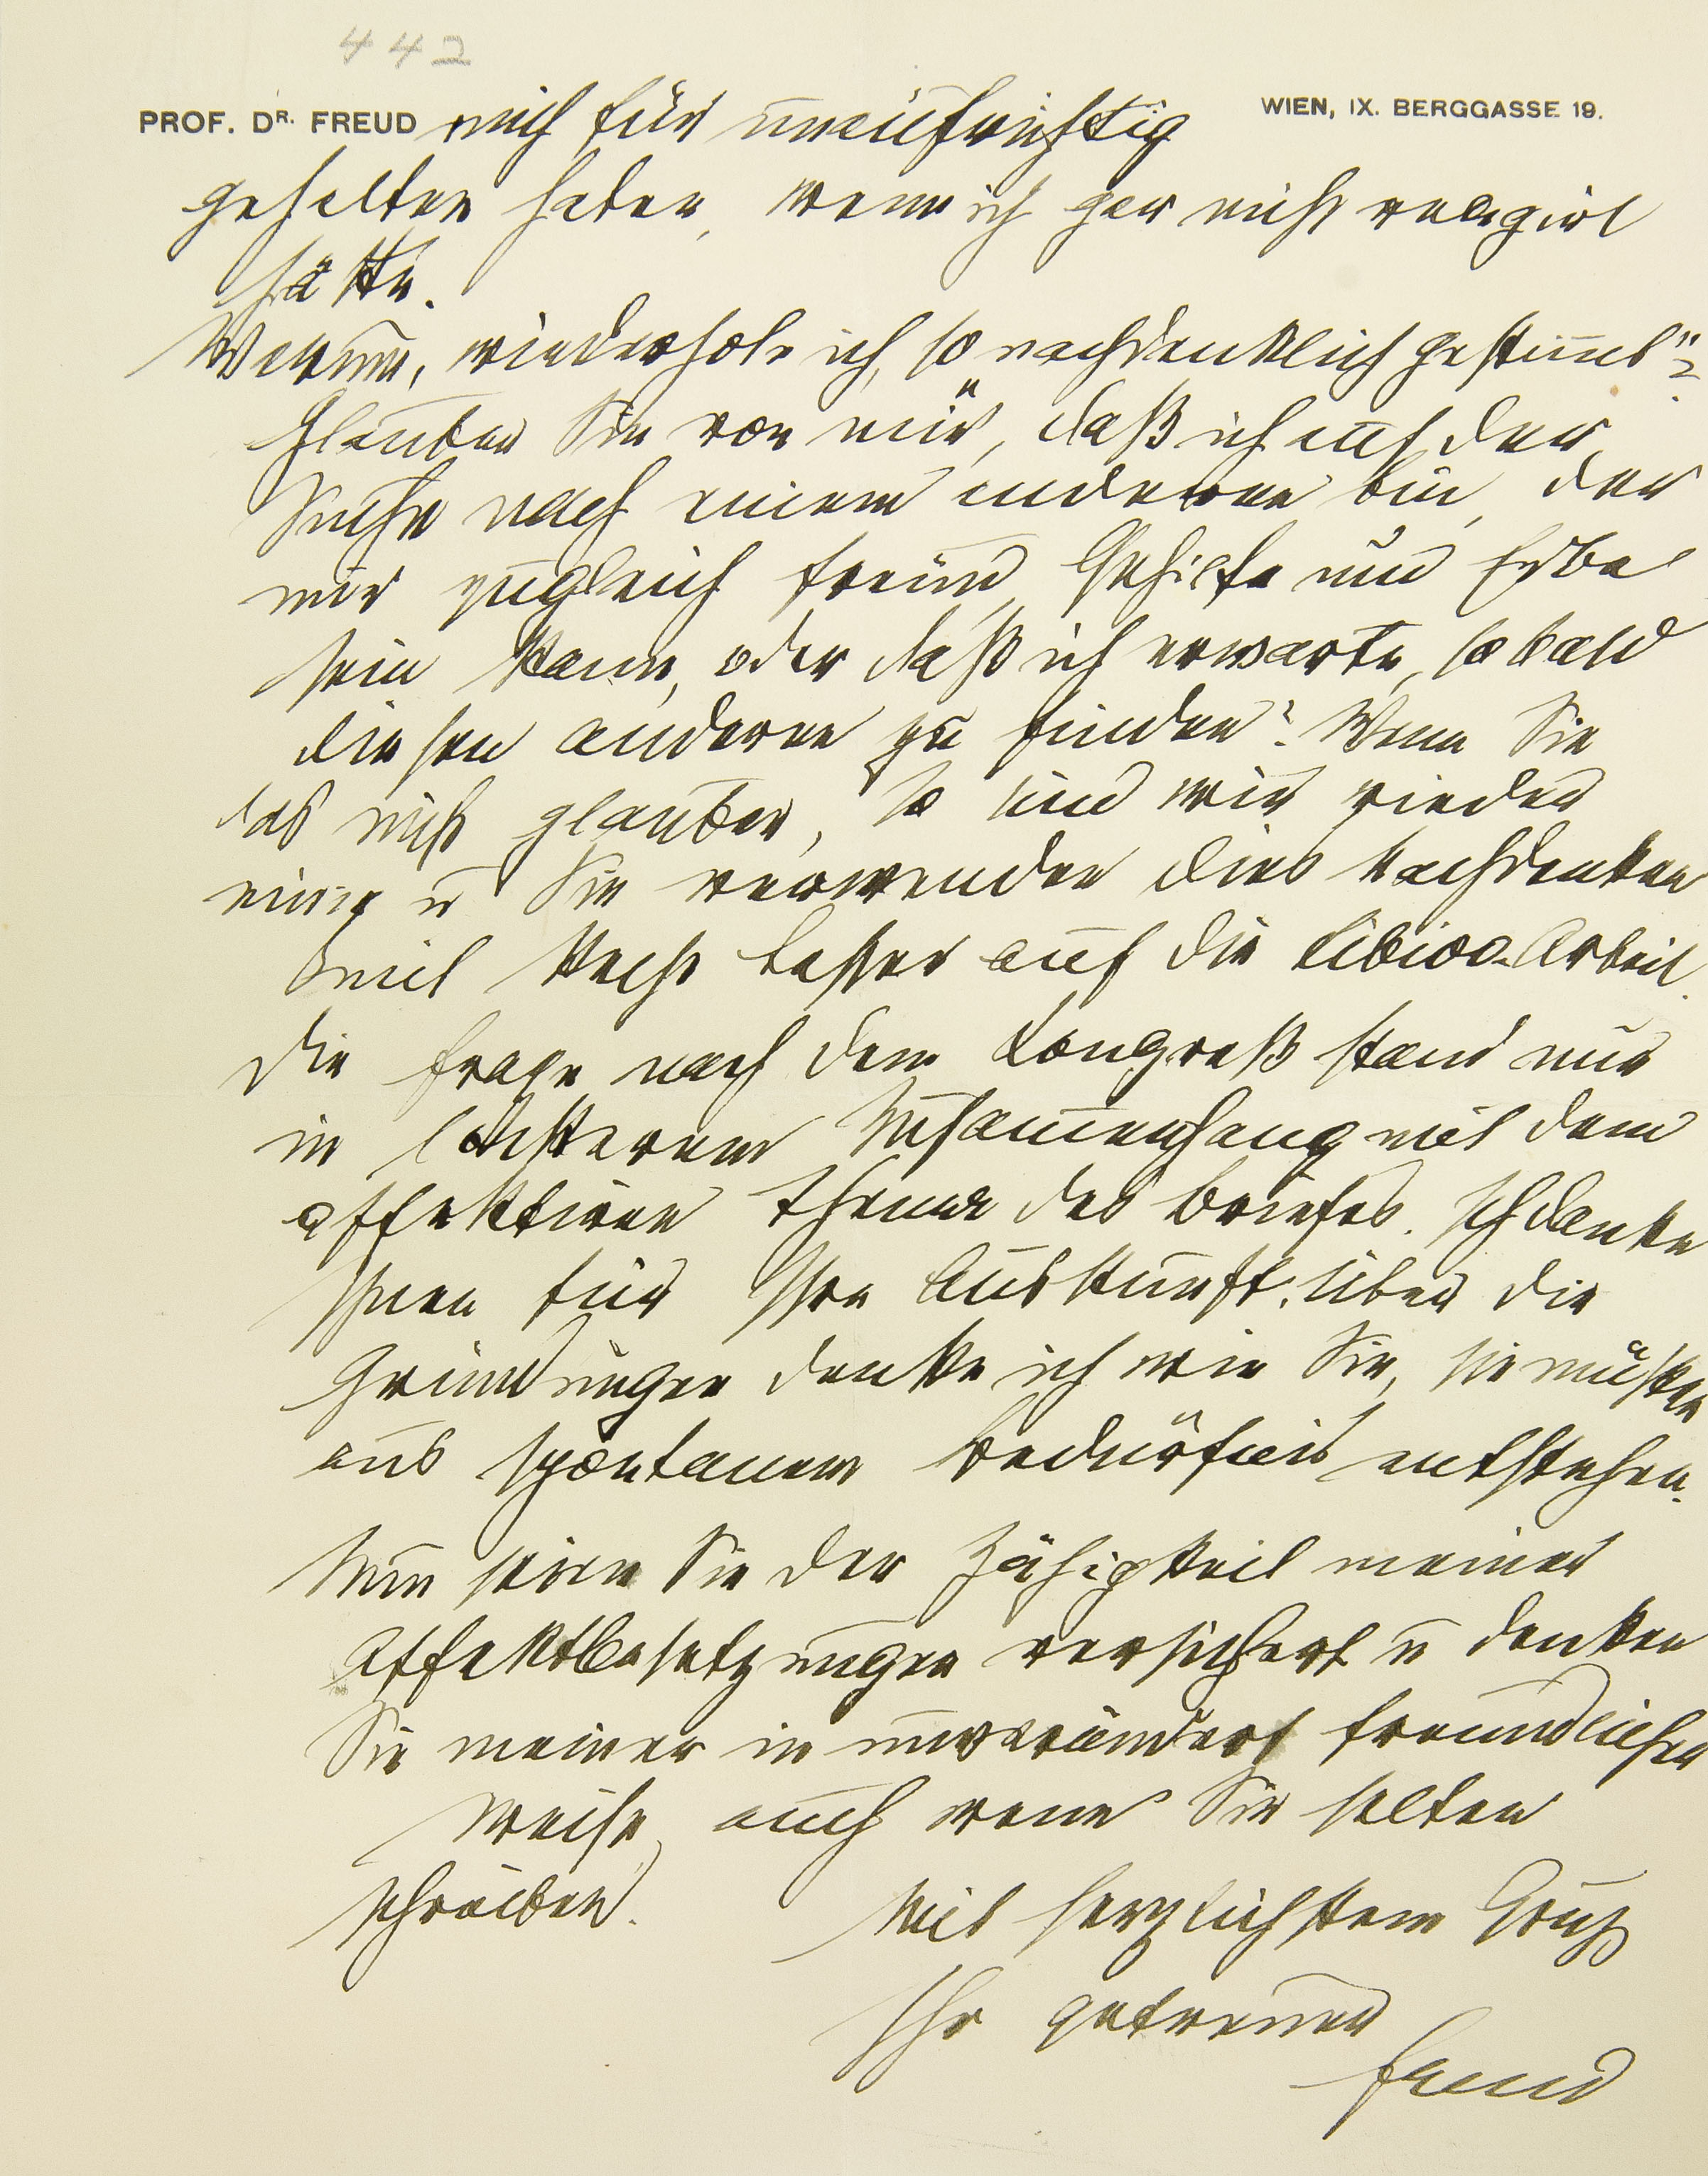 442
PROF. DR. FREUD mich für unaufrichtig WIEN, IX. BERGGASSE 19.
gehalten haben, wenn ich gar nicht reagirt
hätte.
Warum, wiederhole ich, so „nachdenklich gestimmt“?
Glauben Sie von mir, daß ich auf der
Suche nach einem anderen bin, der
mir zugleich Freund, Gehilfe und Erbe
sein kann, oder daß ich erwarte, so bald
diesen anderen zu finden? Wenn Sie
das nicht glauben, so sind wir wieder
einig u Sie verwenden dies Nachdenken
mit Recht besser auf die Libido-Arbeit.
Die Frage nach dem Kongreß stand nur
in lockerem Zusammenhang mit dem
affektiven Thema des Briefes. Ich danke
Ihnen für Ihre Auskunft. Über die
Gründungen denke ich wie Sie, sie müßten
aus spontanem Bedürfnis entstehen.
Nun seien Sie der Zähigkeit meiner
Affektbesetzungen versichert u denken
Sie meiner in unverändert freundlicher
Weise, auch wenn Sie selten
schreiben.
Mit herzlichstem Gruß
Ihr getreuer
Freud